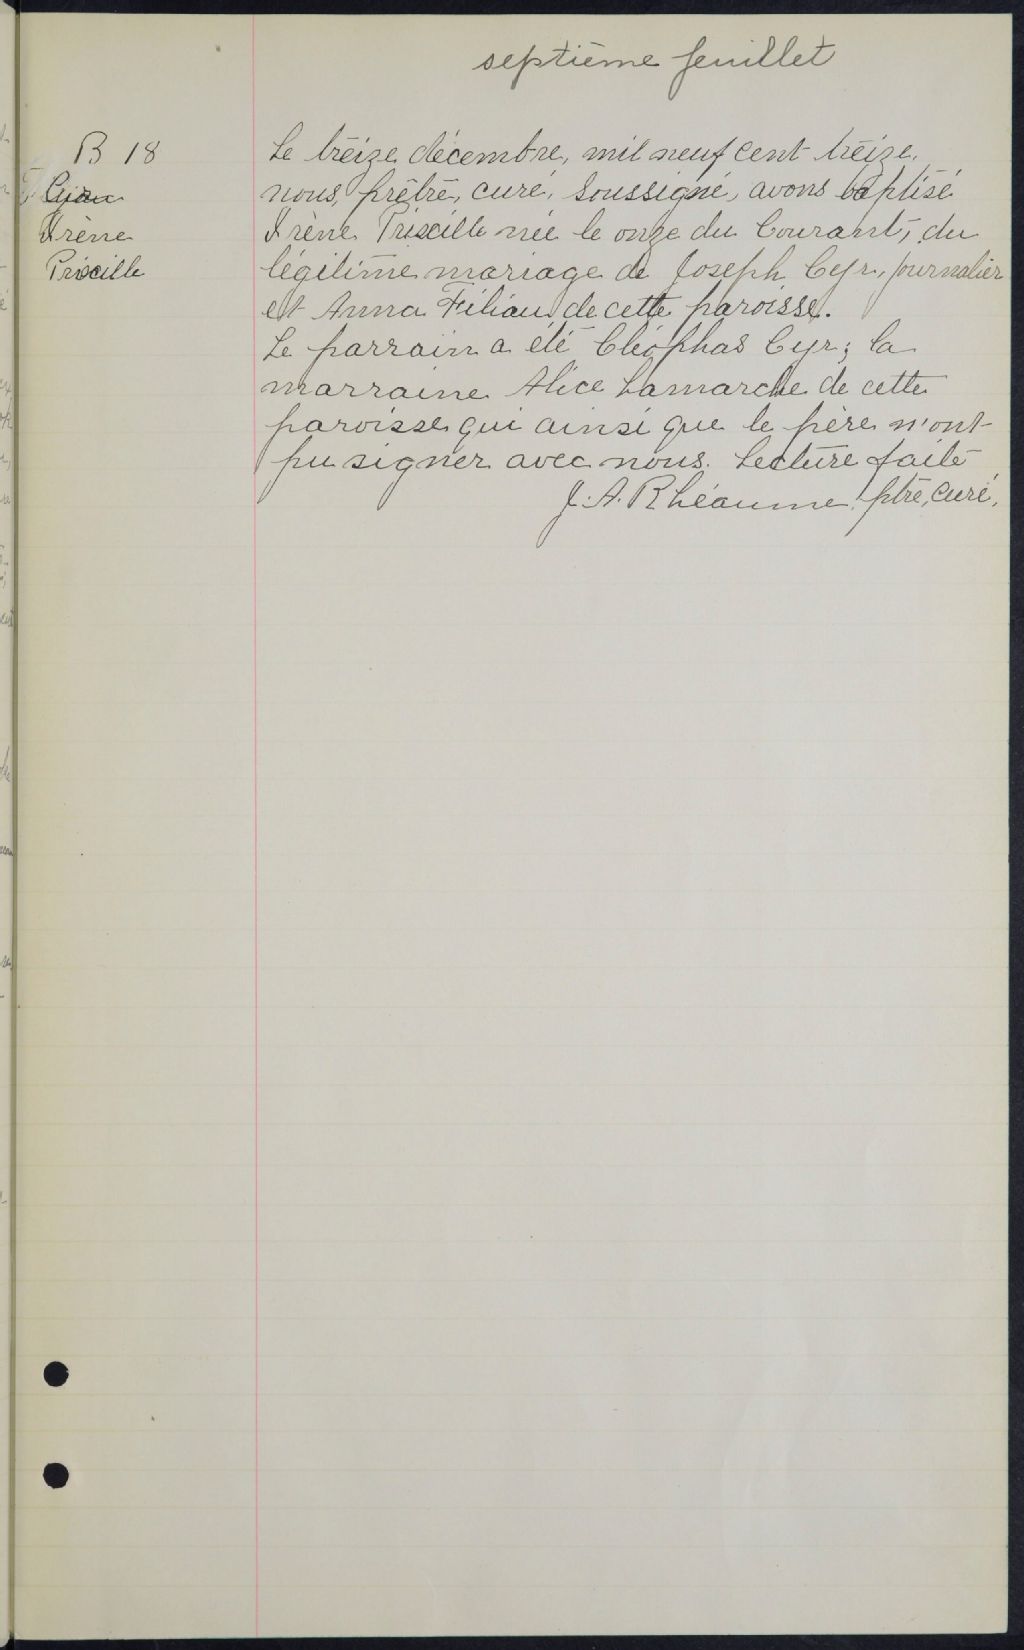 septième feuillet
B 18
Irène
Priscille
Le treize décembre, mil neuf cent treize,
nous, prêtre, curé, soussigné, avons baptisé
Irène Priscille née le onze du courant, du
légitime mariage de Joseph Cyr, journalier
et Anna Filiau de cette paroisse.
Le parrain a été Cléophas Cyr; la
marraine Alice Lamarche de cette
paroisse qui ainsi que le père n'ont
pu signer avec nous. Lecture faite
J. A. Rhéaume, ptre, curé.